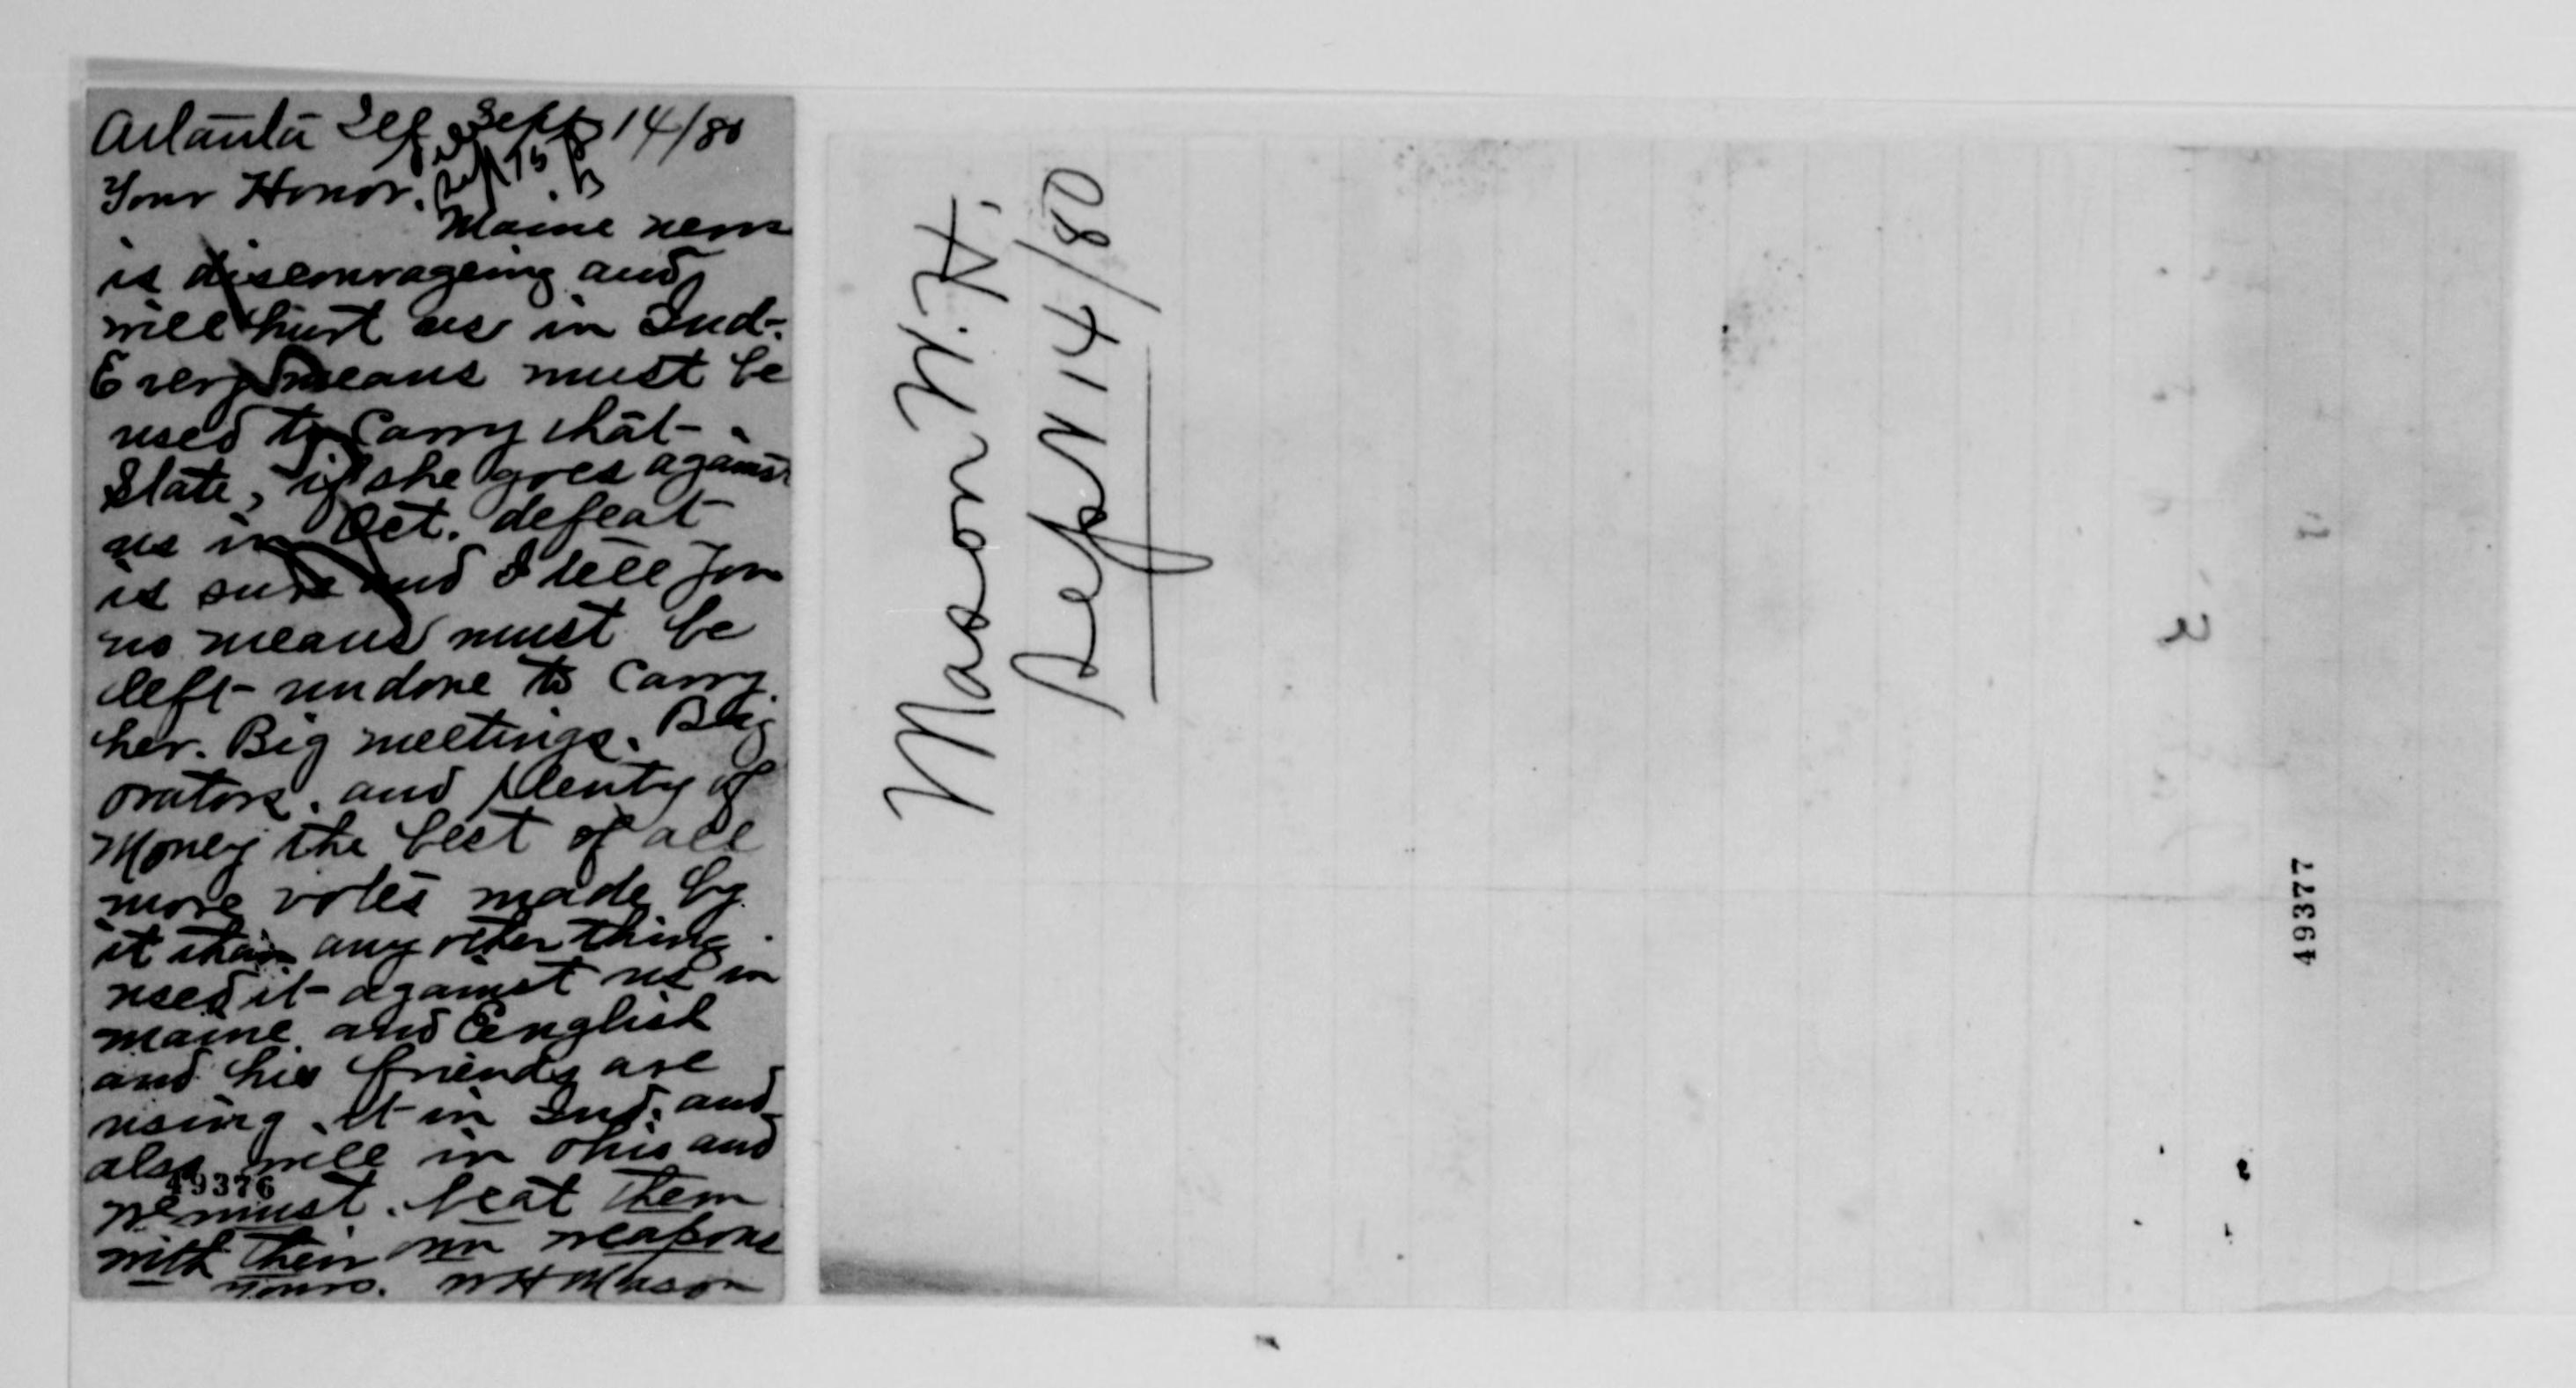 Atlanta Ill Sept 14/80
Sept 15
Your Honor.
Maine news
is discourageing and
will hurt us in Ind-.
Every means must be
used to Carry that
State, if she goes against
us in Oct. defeat
is sure and I tell you
no means must be
left undone to Carry
her. Big meetings. Big
orators. and plenty of
Money the best of all
more votes made by
it than any other thing.
used it against us in
maine. and English
and his friends are
using it in Ind. and
also will in Ohio and
49376
we must beat them
with their own weapons
yours. W H Mason
Mason W.H.
Sept 14/80
3
49377